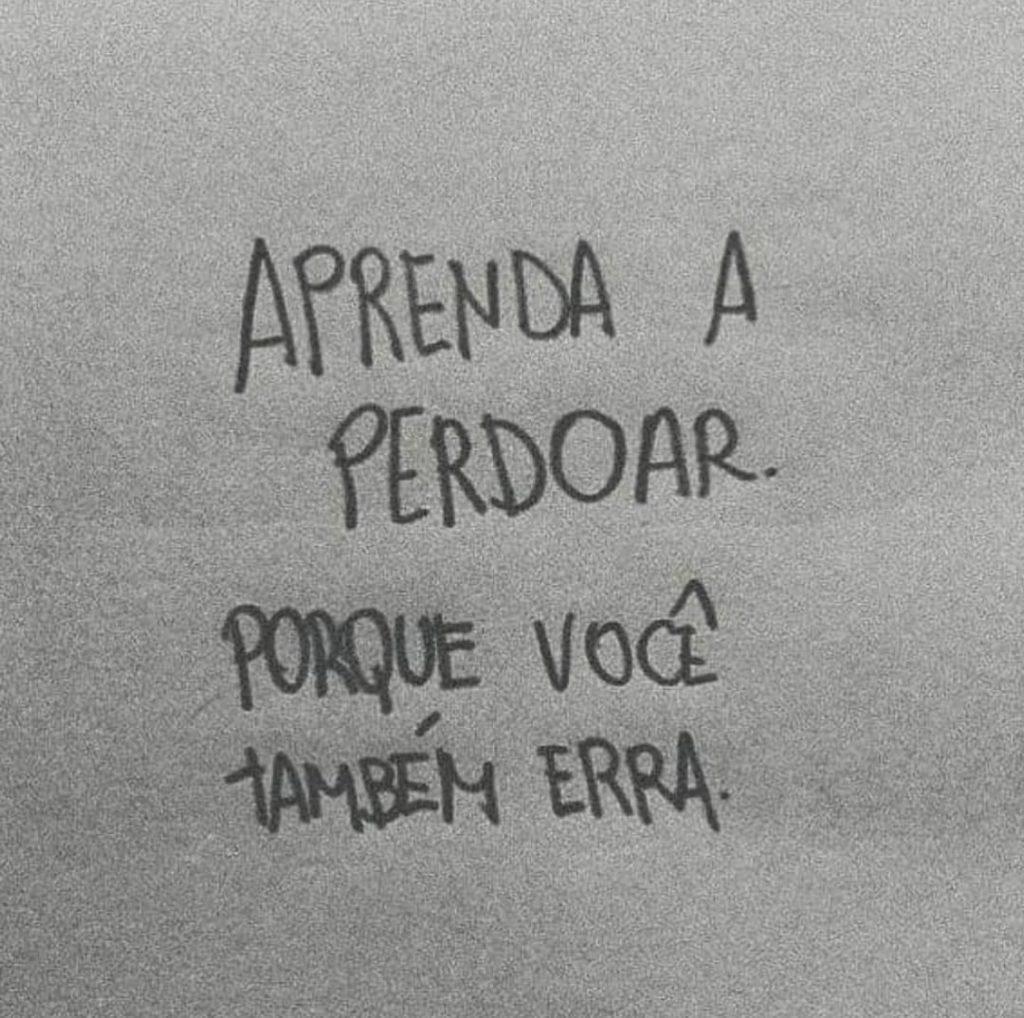 APRENDA A
PERDOAR.
PORQUE VOCÊ
TAMBÉM ERRA.